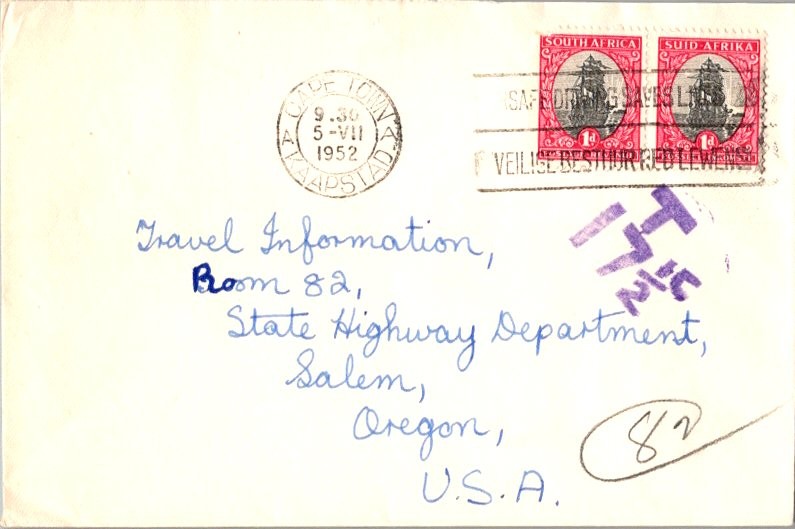 SOUTH AFRICA SUID AFRIKA
1d 1d
CAPE TOWN
A A
9.30
5-VII
1952
KAAPSTAD
SAFE DRIVING SAVES LIVES
VEILIGE BESTUUR RED LEWENS
T
17 1/2 c
Travel Information,
Room 82,
State Highway Department,
Salem,
Oregon,
U.S.A.
82